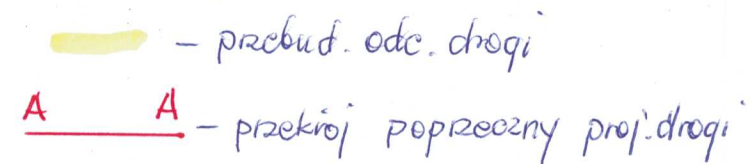 – przebud. odc. drogi
A A – przekrój poprzeczny proj. drogi